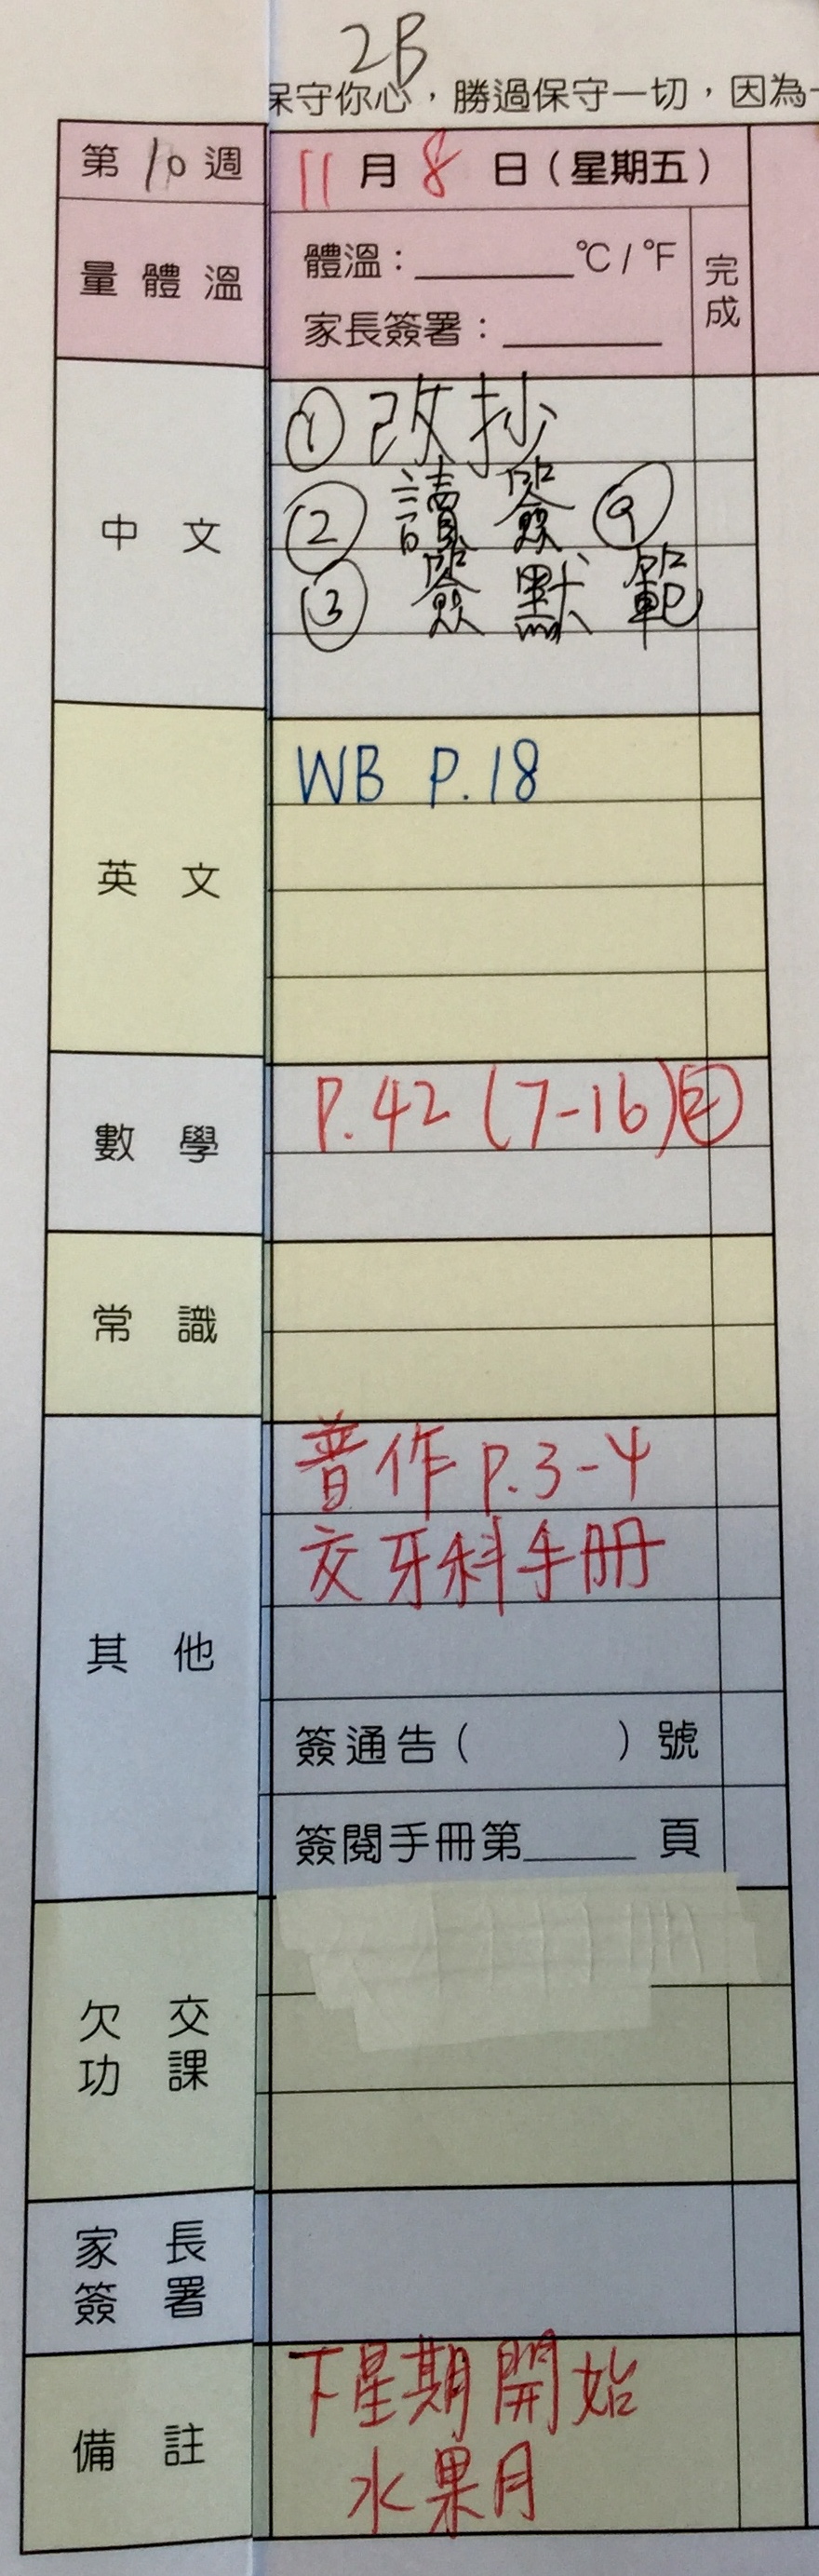 2B
保守你心，勝過保守一切，因為
第10週
11月8日（星期五）
量體溫
體溫：______°C / °F
家長簽署：______
完成
中文
① 改抄
② 讀簽⑨
③ 簽默範
英文
WB P.18
數學
P.42 (7-16)
常識
其他
普作 P.3-4
交牙科手册
簽通告（ ）號
簽閱手冊第____頁
欠交
功課
家長
簽署
備註
下星期開始
水果月